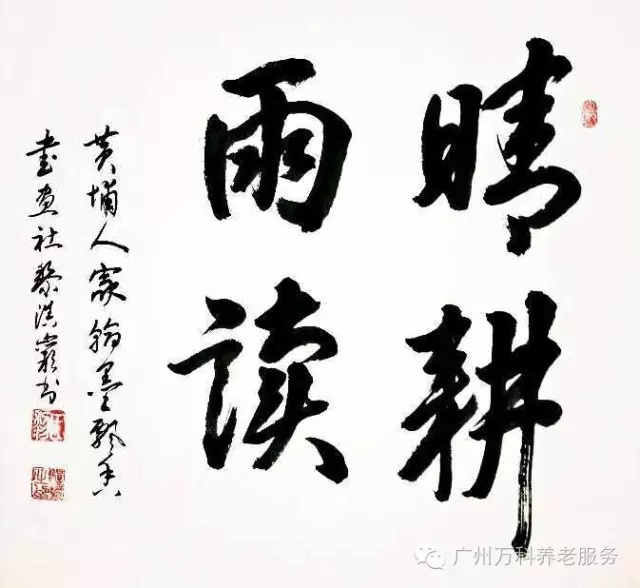 晴耕
雨读
黄埔人家翰墨飘香
书画社黎洪岩书
广州万科养老服务